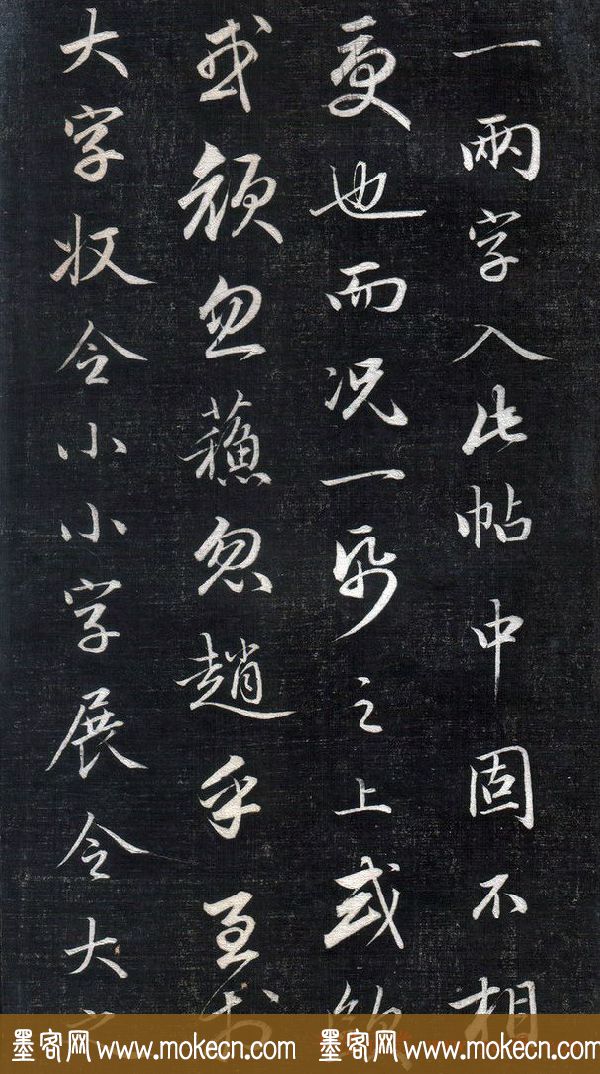 一兩字入此帖中固不相
更也而况一帋之上或
或顔忽蘓忽趙乎至
大字收令小小字展令大
墨客网 www.mokecn.com 墨客网 www.mokecn.com